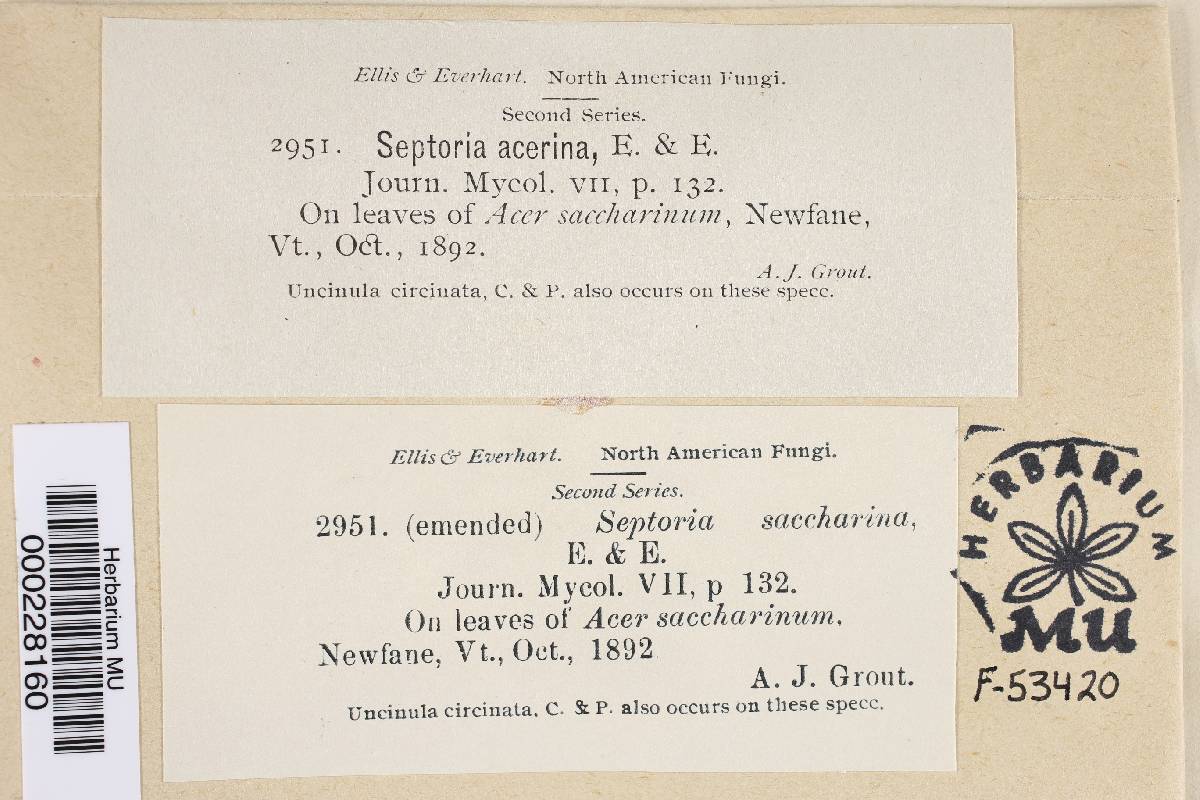 Ellis & Everhart. North American Fungi.
Second Series.
2951. Septoria acerina, E. & E.
Journ. Mycol. VII, p. 132.
On leaves of Acer saccharinum, Newfane,
Vt., Oct., 1892.
A. J. Grout.
Uncinula circinata, C. & P. also occurs on these specc.
Ellis & Everhart. North American Fungi.
Second Series.
2951. (emended) Septoria saccharina,
E. & E.
Journ. Mycol. VII, p 132.
On leaves of Acer saccharinum.
Newfane, Vt., Oct., 1892
A. J. Grout.
Uncinula circinata, C. & P. also occurs on these specc.
Herbarium MU
000228160
HERBARIUM
MU
F-53420